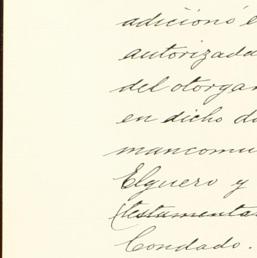 adicionó e
autorizada
del otorgan
en dicho di
mancomu
Elguero y
(testamenta
Condado.